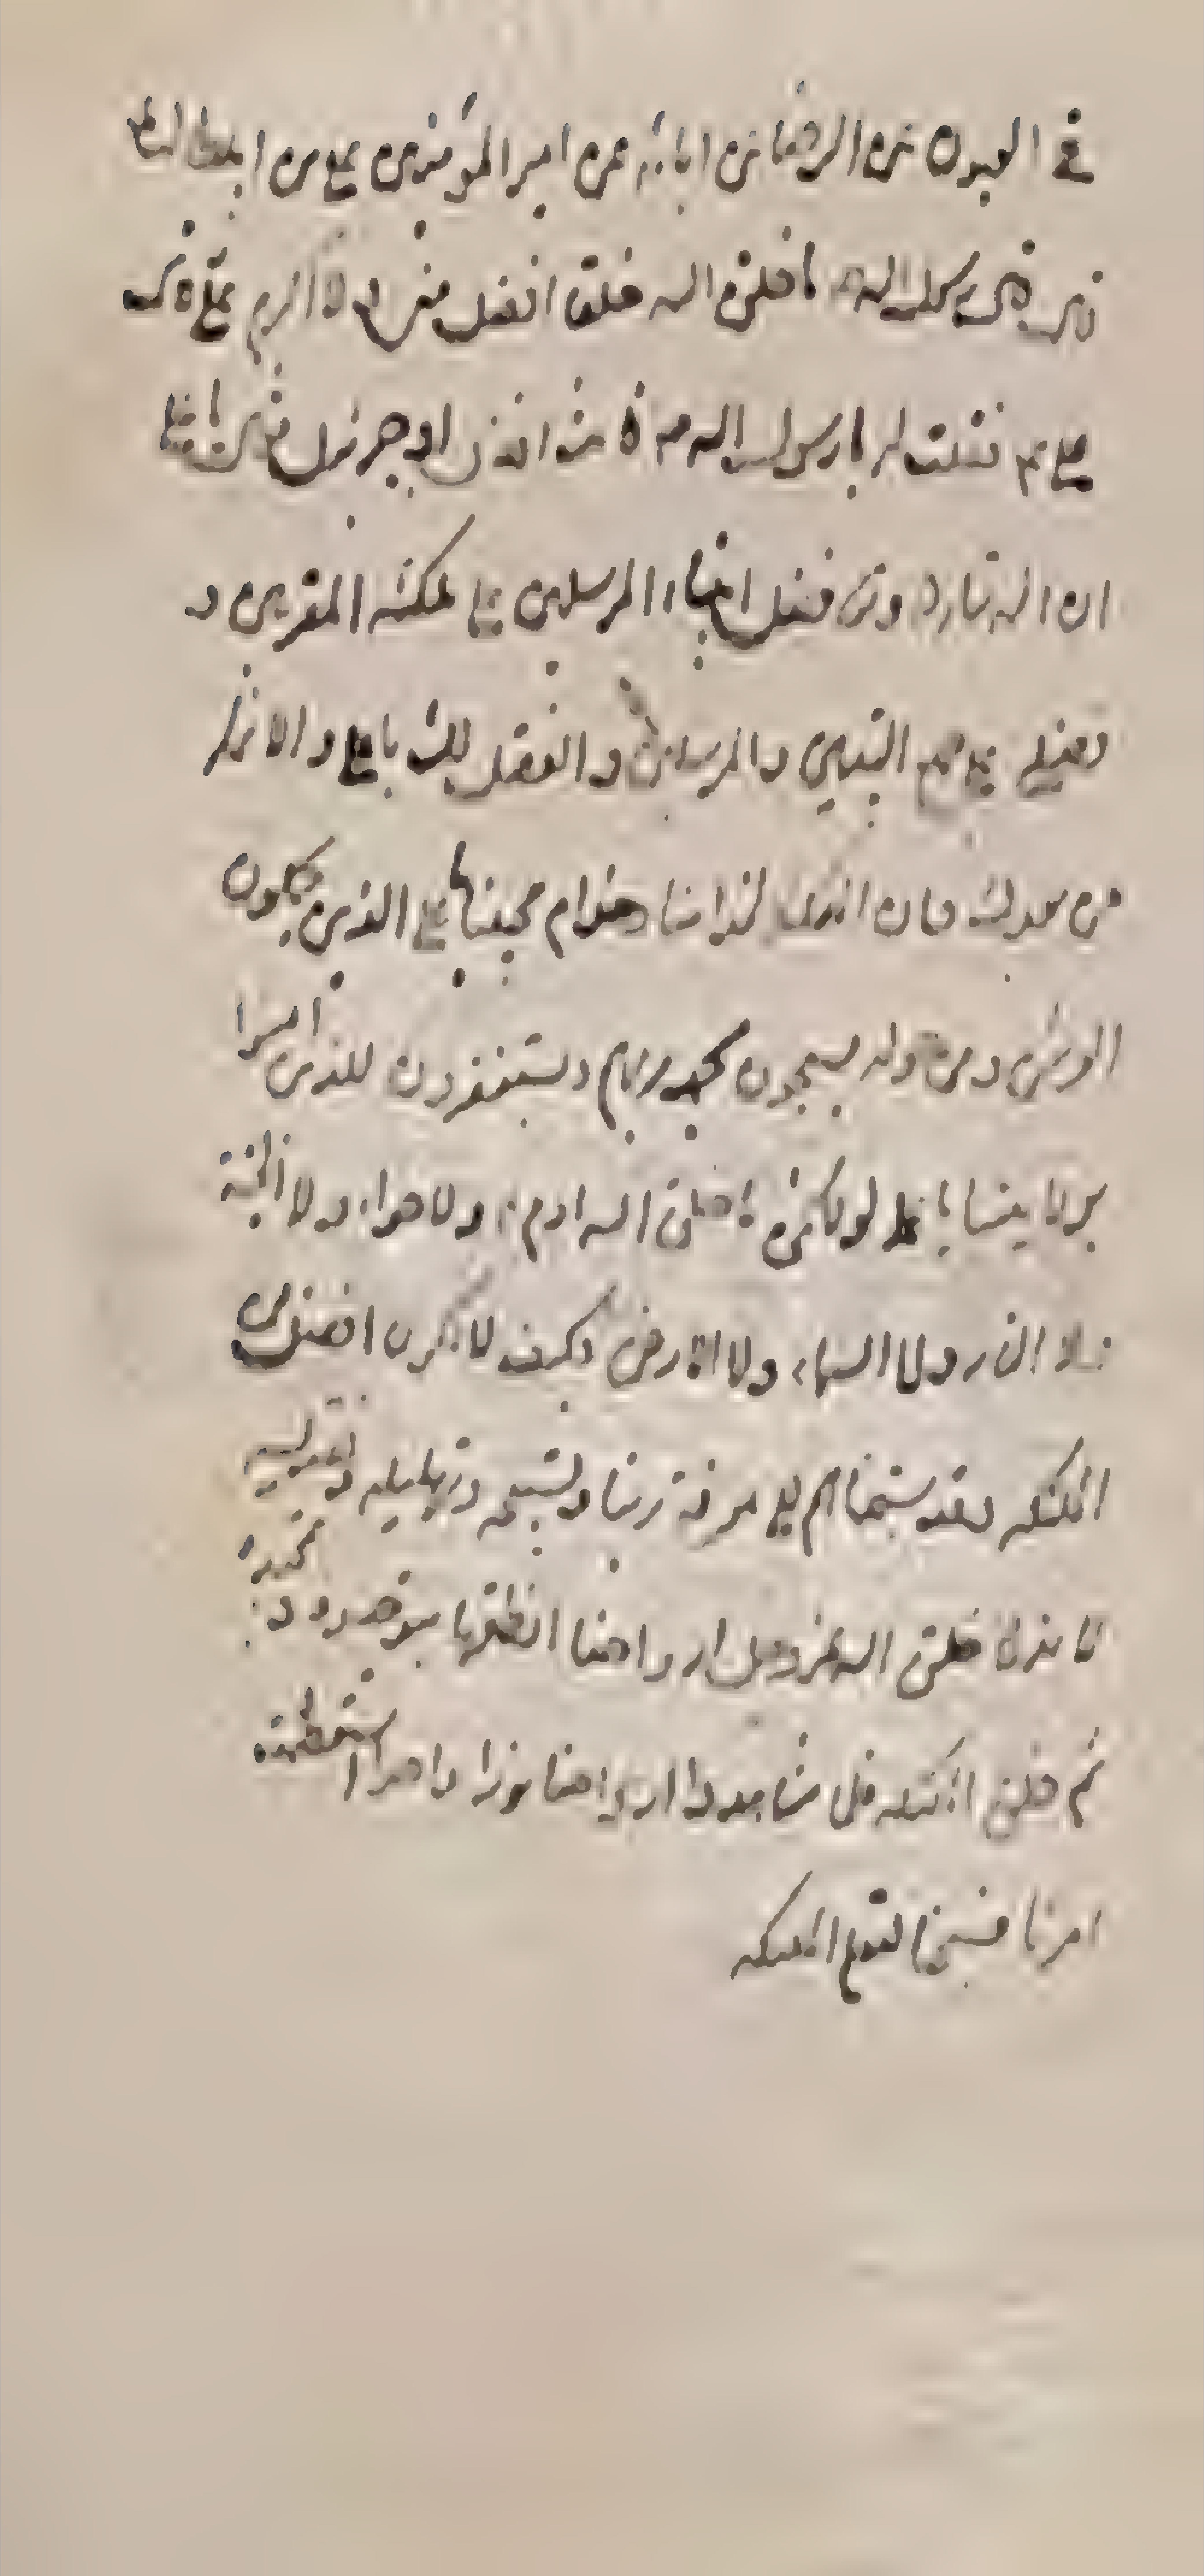 في العيون عن الرضا عن ابائه عن امير المؤمنين علي بن ابيطالب
قال قال رسول الله ما خلق الله خلقا افضل مني ولا اكرم عليه مني قال
علي ع فقلت له يا رسول الله ص فانت افضل او جبرئيل فقال يا علي
ان الله تبارك وتعالى فضل انبياءه المرسلين على ملئكته المقربين و
فضلني على جميع النبيين والمرسلين والفضل بعدي لك يا علي وللائمة
من بعدك فان الملئكة لخدامنا وخدام محبينا يا علي الذين يحملون
العرش ومن حوله يسبحون بحمد ربهم ويستغفرون للذين امنوا
بولايتنا يا علي لولا نحن ما خلق الله ادم ع ولا حواء ولا الجنة
ولا النار ولا السماء ولا الارض وكيف لا نكون افضل من
الملئكة وقد سبقناهم الى معرفة ربنا وتسبيحه وتهليله وتقديسه
لان اول ما خلق الله عز وجل ارواحنا انطقنا بتوحيده وتمجيده
ثم خلق الملئكة فلما شاهدوا ارواحنا نورا واحدا استعظموا
امرنا فسبحنا لتعلم الملئكة